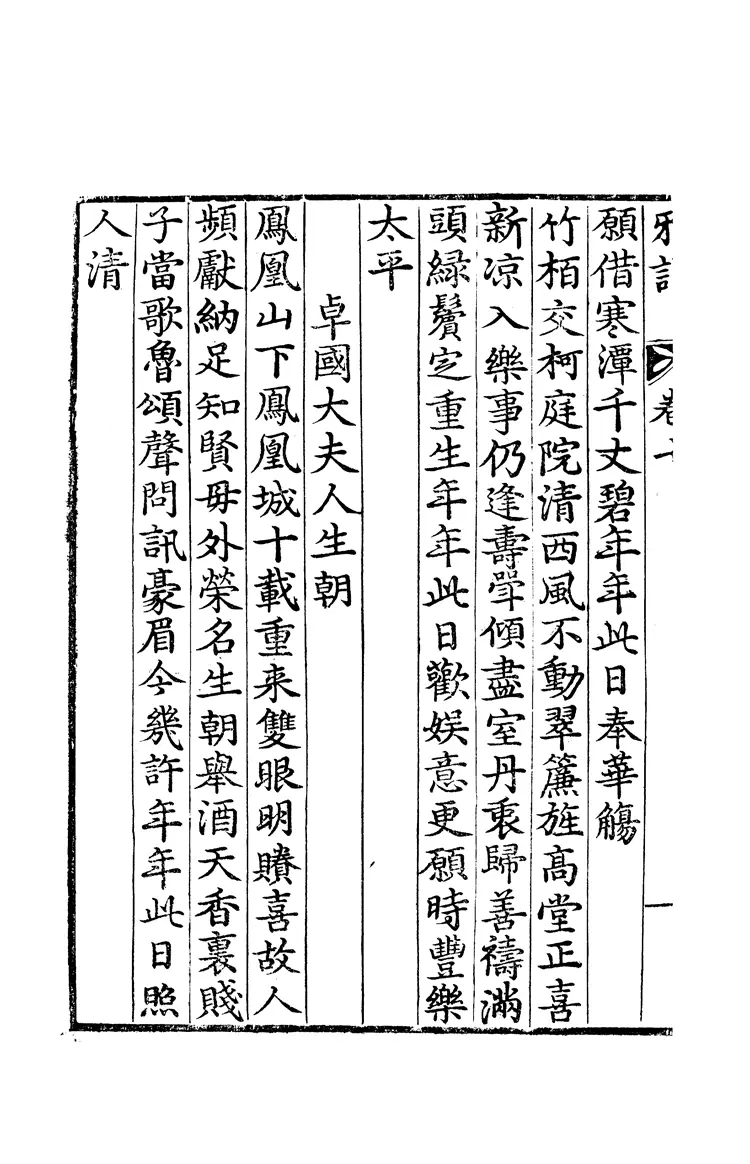 願借寒潭千丈碧年年此日奉華觴
竹栢交柯庭院清西風不動翠簾旌髙堂正喜
新凉入樂事仍逢壽斝傾盡室丹衷歸善禱滿
頭緑鬢定重生年年此日歡娱意更願時豐樂
太平
卓國大夫人生朝
鳳凰山下鳳凰城十載重来雙眼明贐喜故人
頻獻納足知賢毋外榮名生朝舉酒天香裏賤
子當歌魯頌聲問訊豪眉今幾許年年此日照
人清